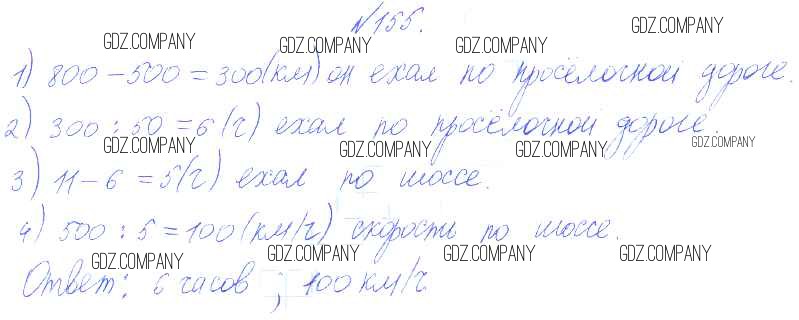 №155.
1) 800 - 500 = 300 (км) он ехал по просёлочной дороге.
2) 300 : 50 = 6 (ч) ехал по просёлочной дороге.
3) 11 - 6 = 5 (ч) ехал по шоссе.
4) 500 : 5 = 100 (км/ч) скорость по шоссе.
Ответ: 6 часов ; 100 км/ч
GDZ.COMPANY
GDZ.COMPANY
GDZ.COMPANY
GDZ.COMPANY
GDZ.COMPANY
GDZ.COMPANY
GDZ.COMPANY
GDZ.COMPANY
GDZ.COMPANY
GDZ.COMPANY
GDZ.COMPANY